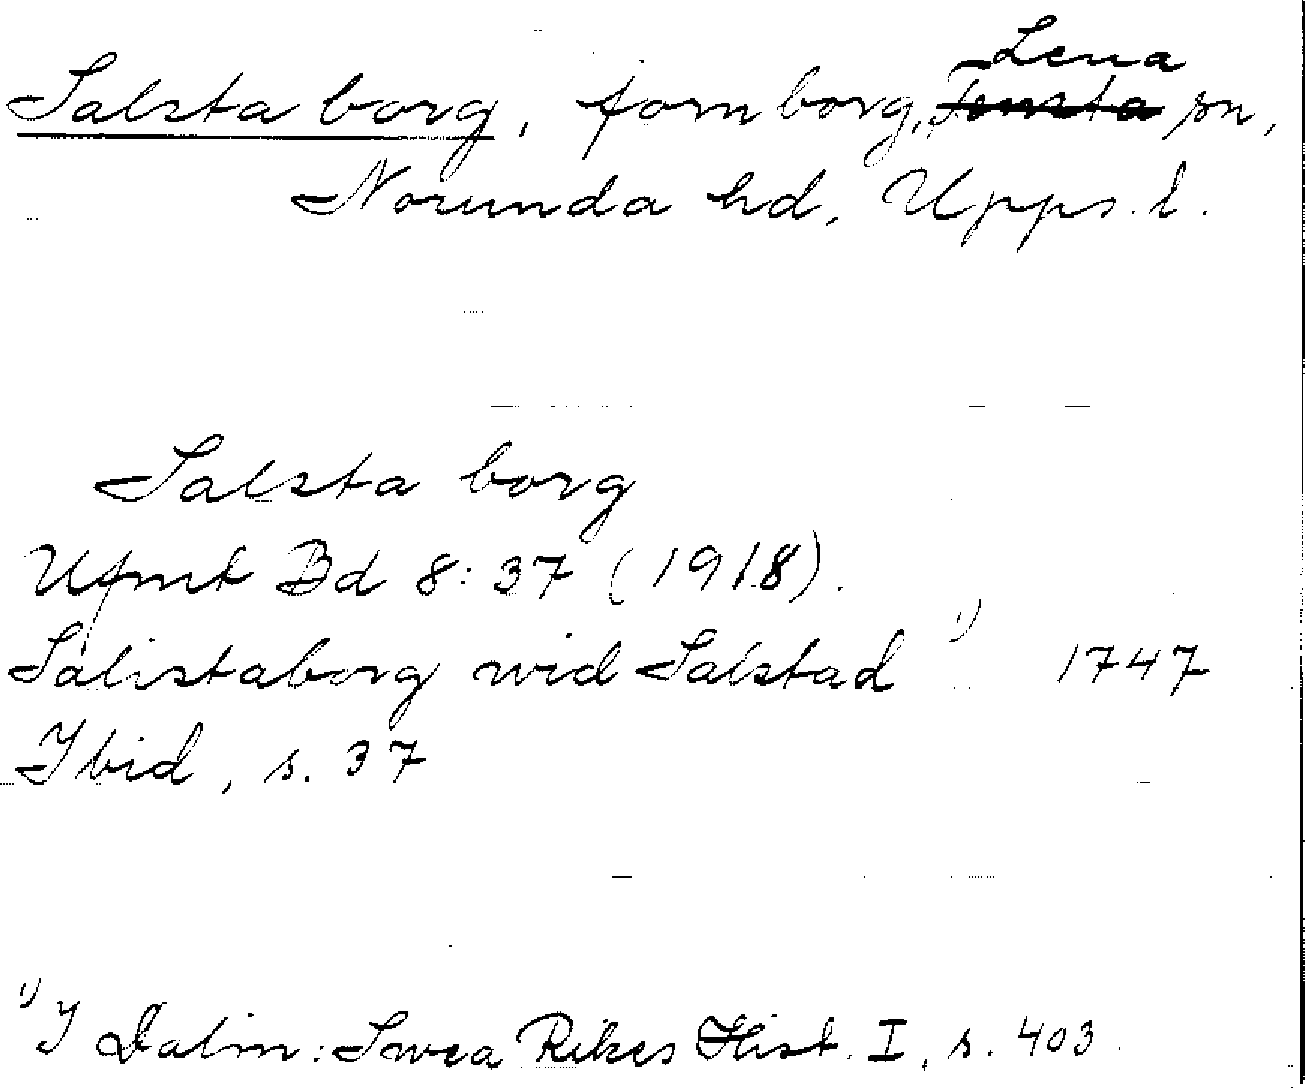 Lena
Salsta borg, fornborg, Tensta sn,
Norunda hd, Upps. l.
Salsta borg
Ufmt Bd 8:37 (1918).
Salistaborg wid Salstad ¹) 1747
Ibid, s. 37
¹) I Dalin: Swea Rikes Hist. I, s. 403.